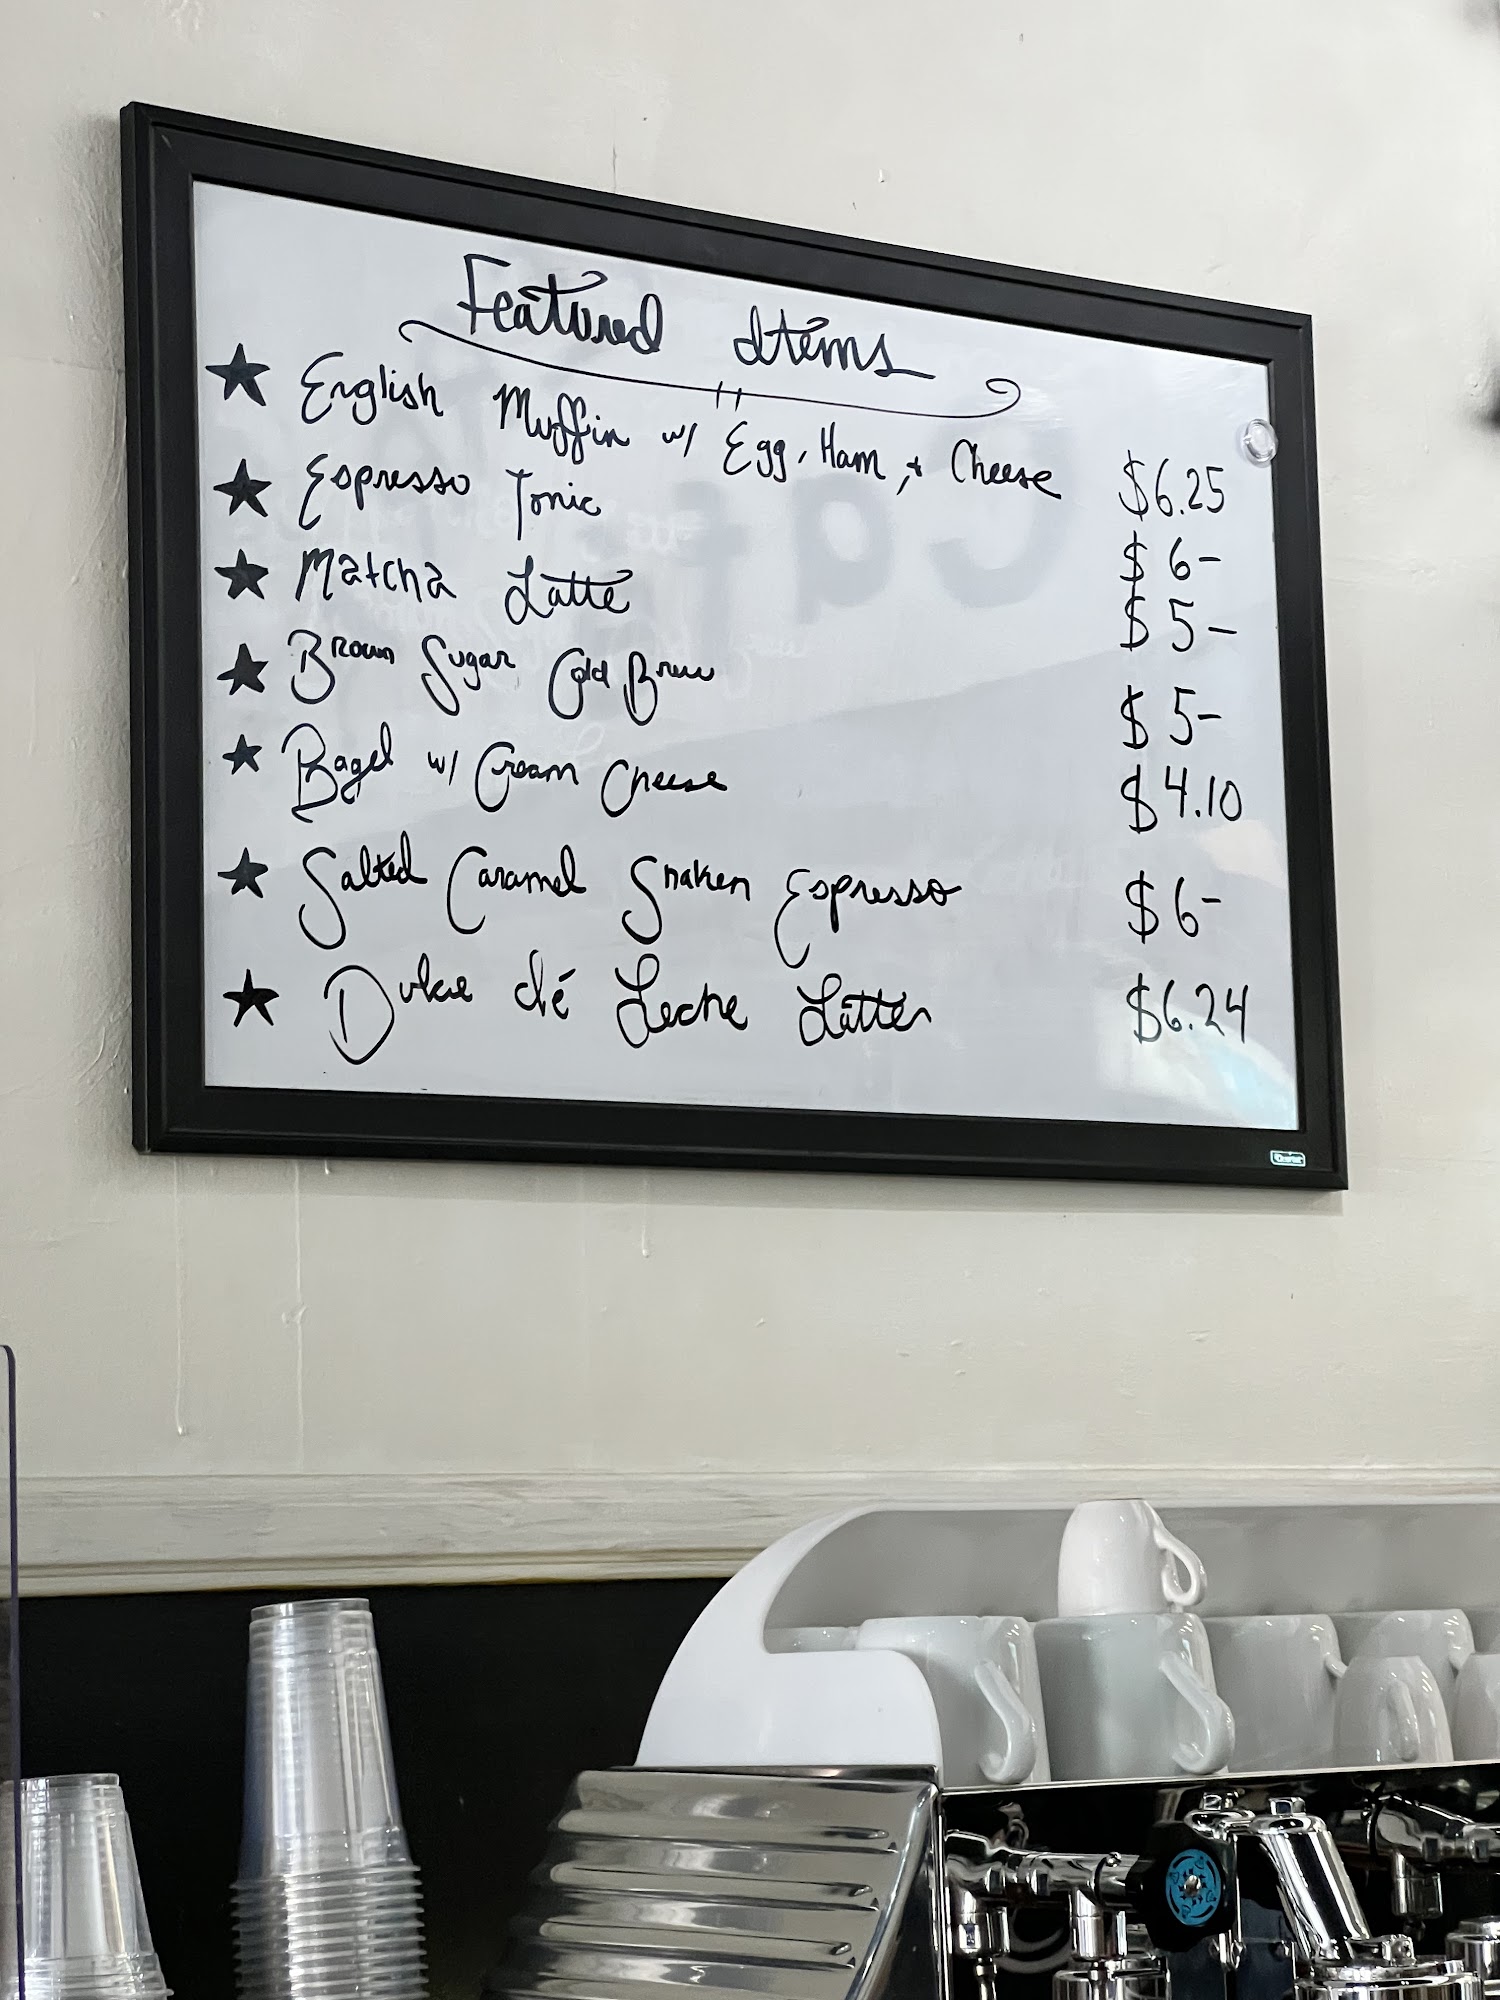 Featured Items
★ English Muffin w/ Egg, Ham, + Cheese $6.25
★ Espresso Tonic $6-
★ Matcha Latte $5-
★ Brown Sugar Cold Brew $5-
★ Bagel w/ Cream Cheese $4.10
★ Salted Caramel Shaken Espresso $6-
★ Dulce dé Leche Latter $6.24
Quartet